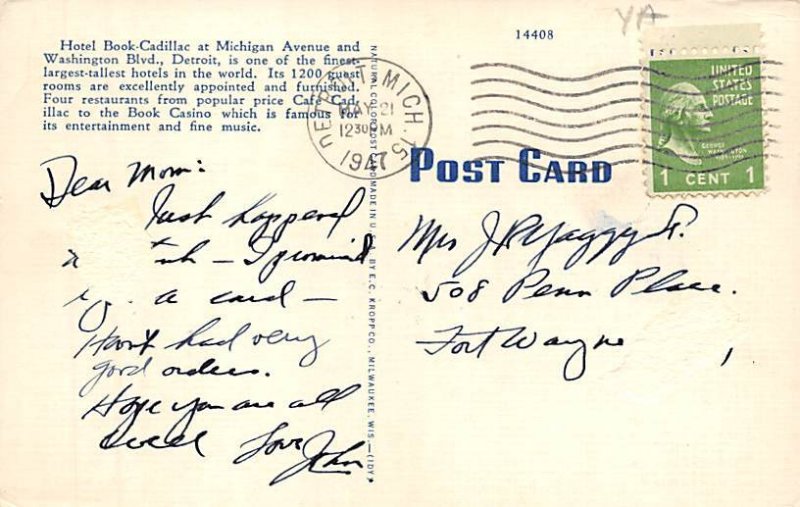 14408
YA
Hotel Book-Cadillac at Michigan Avenue and
Washington Blvd., Detroit, is one of the finest-
largest-tallest hotels in the world. Its 1200 guest
rooms are excellently appointed and furnished.
Four restaurants from popular price Cafe Cad-
illac to the Book Casino which is famous for
its entertainment and fine music.
DETROIT, MICH. 15
MAY 21
12 30 PM
1947
UNITED
STATES
POSTAGE
GEORGE
WASHINGTON
1 CENT 1
NATURAL COLOR POST CARD MADE IN U.S.A. BY E.C. KROPP CO., MILWAUKEE, WIS.—(IDY)
POST CARD
Dear Mom:
Just happened
a — I promised
a card —
Haven't had very
good orders.
Hope you are all
well Love John
Mrs J R Yaggy Sr.
508 Penn Place.
Fort Wayne,